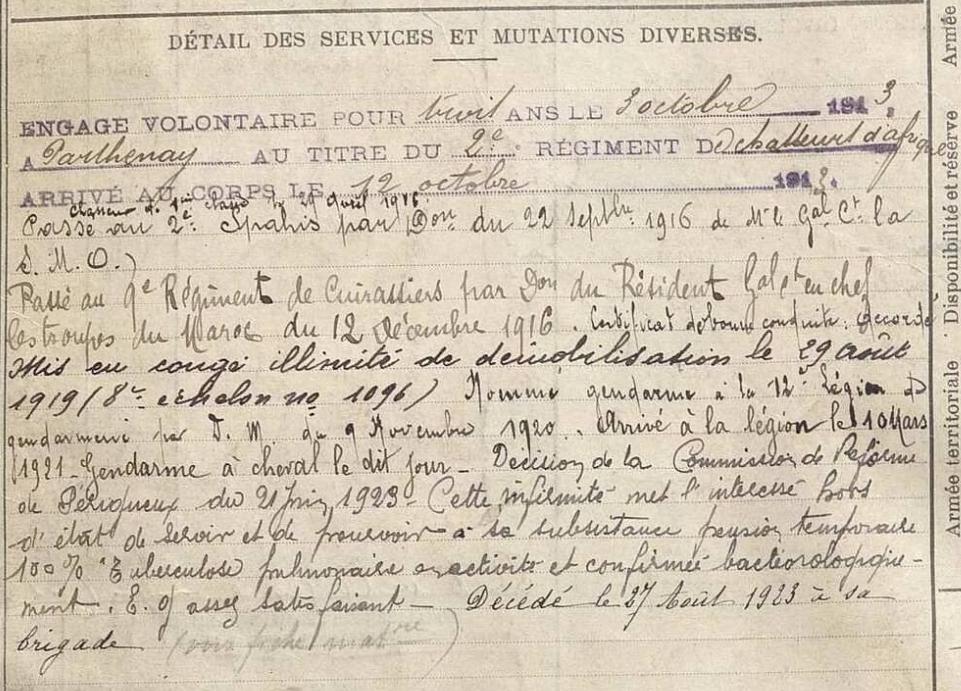 DÉTAIL DES SERVICES ET MUTATIONS DIVERSES.
ENGAGE VOLONTAIRE POUR trois ANS LE 3 octobre 1913.
A Parthenay AU TITRE DU 2e RÉGIMENT De chasseurs d'afrique
ARRIVÉ AU CORPS LE 12 octobre 1913.
chasseur de 1ère classe le 21 avril 1916.
Passé au 2e Spahis par Don du 22 Septbre 1916 de Mr le Gal Ct la
S. M. O.)
Passé au 9e Régiment de Cuirassiers par Don du Résident Gal Ct en chef
les troupes du Maroc du 12 Décembre 1916. Certificat de bonne conduite : Accordé
Mis en congé illimité de démobilisation le 29 Août
1919 (8e échelon no 1096) Nommé gendarme à la 12e Légion de
gendarmerie par D. M. du 9 Novembre 1920. Arrivé à la légion le 10 Mars
1921. Gendarme à cheval le dit jour - Décision de la Commission de Réforme
de Périgueux du 21 juin 1923 - Cette infirmité met l'interessé hors
d'état de servir et de pourvoir à sa subsistance pension temporaire
100% Tuberculose pulmonaire en activité et confirmée bactériologique-
ment. E. g assez satisfaisant - Décédé le 27 Août 1923 à sa
brigade (voir fiche matre)
Armée territoriale
Disponibilité et réserve
Armée